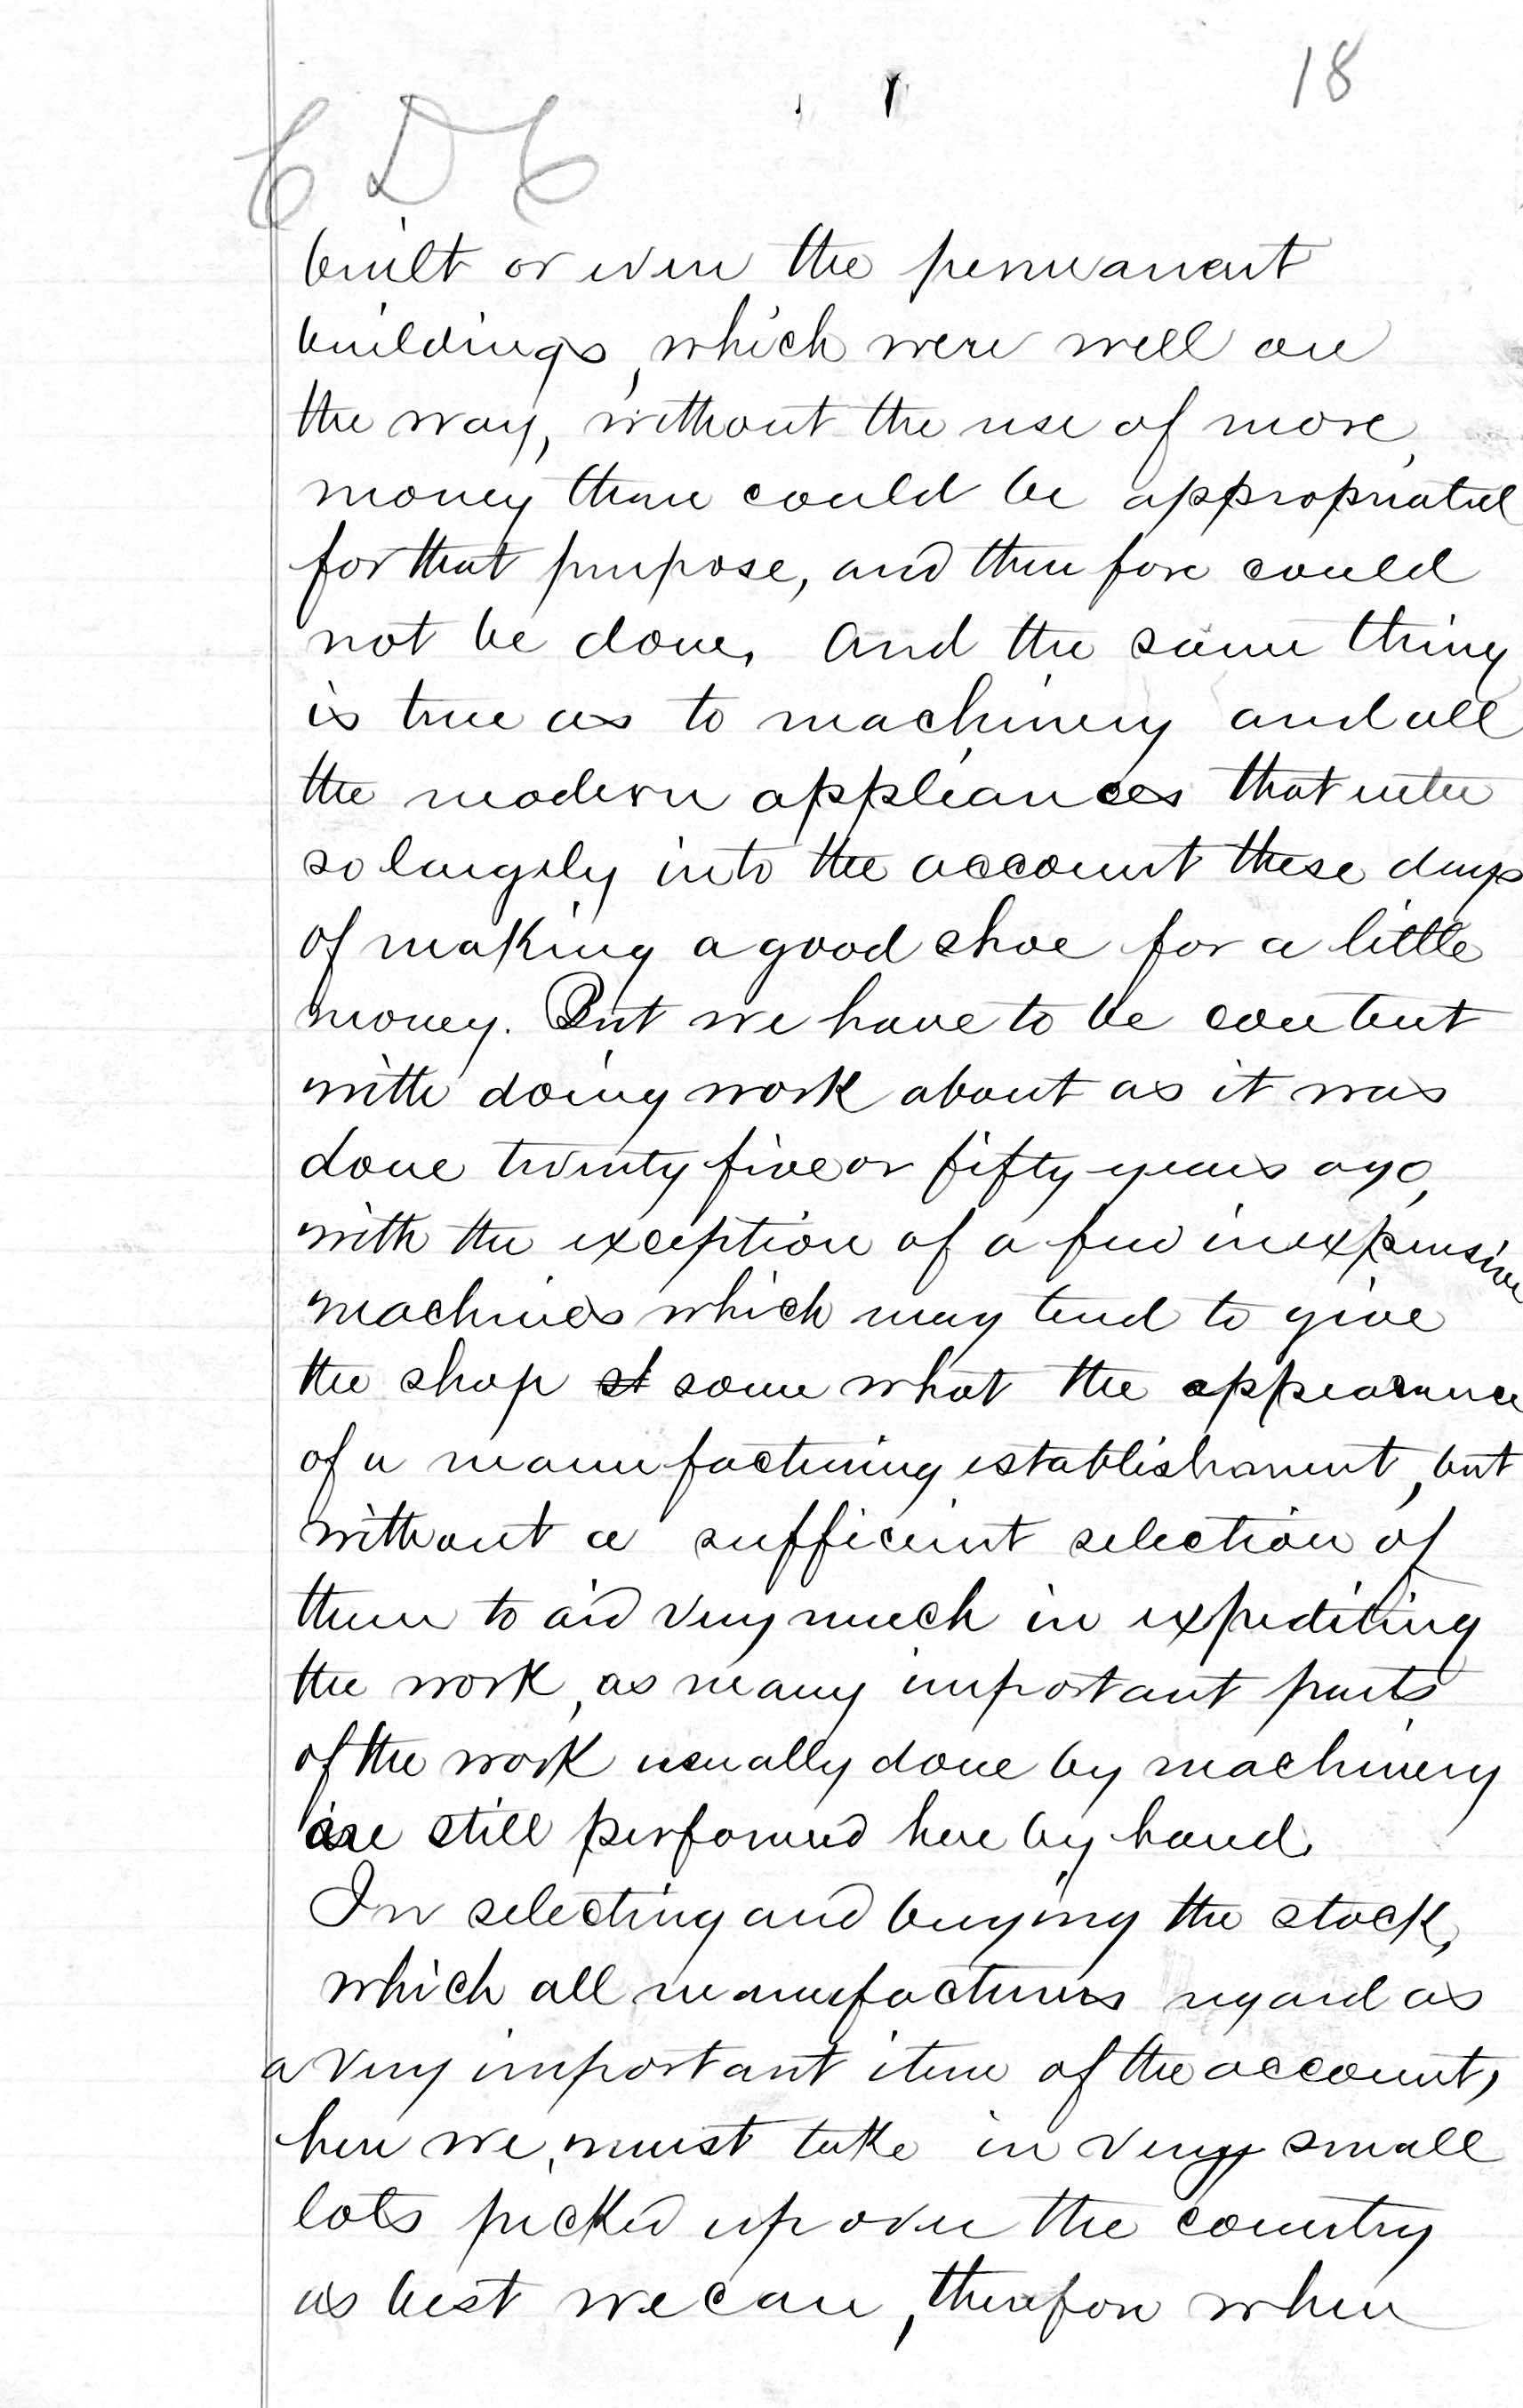 18
C D C
built or even the permanent
buildings, which were well on
the way, without the use of more
money than could be appropriated
for that purpose, and therefore could
not be done. And the same thing
is true as to machinery and all
the modern appliances that enter
so largely into the account these days
of making a good shoe for a little
money. But we have to be content
with doing work about as it was
done twenty five or fifty years ago,
with the exception of a few inexpensive
machines which may tend to give
the shop st some what the appearance
of a manufacturing establishment, but
without a sufficient selection of
them to aid very much in expediting
the work, as many important parts
of the work usually done by machinery
are still performed here by hand.
In selecting and buying the stock,
which all manufacturers regard as
a very important item of the account,
here we must take in very small
lots picked up over the country
as best we can, therefore when